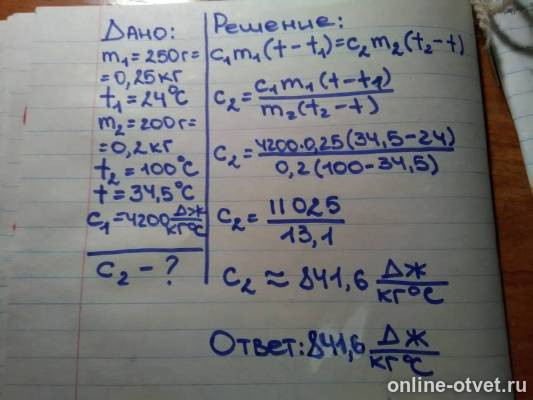 Дано:
m₁=250г=
=0,25кг
t₁=24°C
m₂=200г=
=0,2кг
t₂=100°C
t=34,5°C
c₁=4200 Дж/кг°C
c₂-?
Решение:
c₁m₁(t-t₁)=c₂m₂(t₂-t)
c₂=c₁m₁(t-t₁)/m₂(t₂-t)
c₂=4200·0,25(34,5-24)/0,2(100-34,5)
c₂=11025/13,1
c₂≈841,6 Дж/кг°C
Ответ:841,6 Дж/кг°C
online-otvet.ru